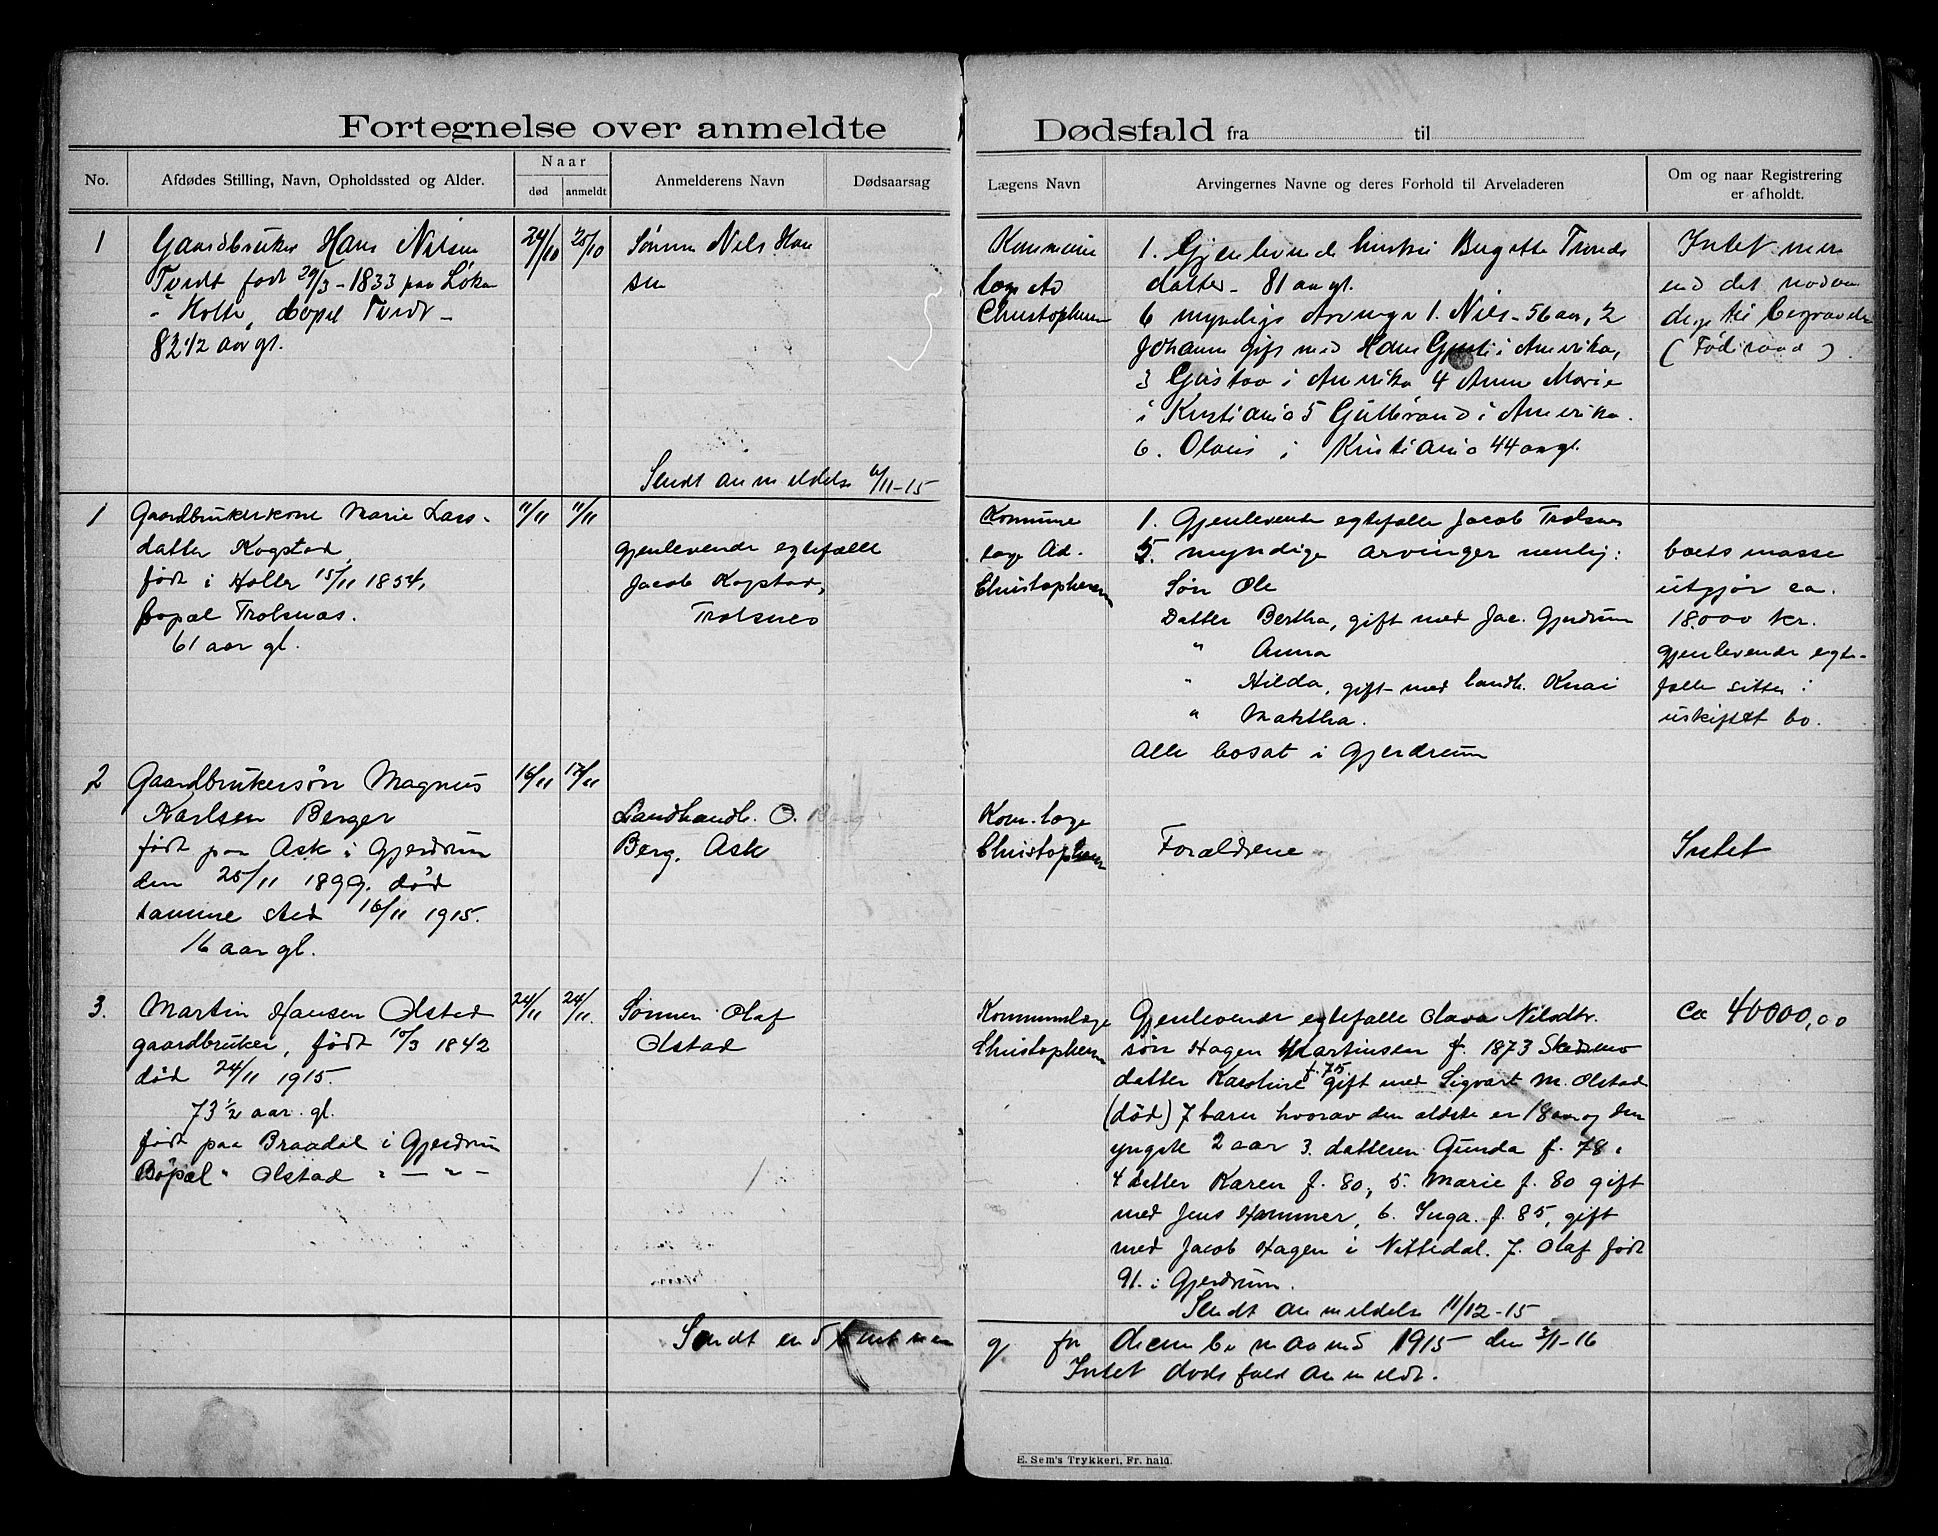 Fortegnelse over anmeldte Dødsfald fra til
No.
Afdødes Stilling, Navn, Opholdssted og Alder.
Naar
død
anmeldt
Anmelderens Navn
Dødsaarsag
Lægens Navn
Arvingernes Navne og deres Forhold til Arveladeren
Om og naar Registrering
er afholdt.
1
Gaardbruker Hans Nilsen
Tvedt født 29/3 - 1833 paa Løke
- Holte, bopæl Tvedt -
82 1/2 aar gl.
24/10
25/10
Sønnen Nils Han
sen
Kommune
læge Ad
Christophersen
1. Gjenlevende hustru Bergitte Tronds
datter - 81 aar gl.
6 myndige Arvinge 1. Nils - 56 aar, 2
Johanne gift med Hans Gjesti i Amerika,
3 Gustav i Amerika 4 Anne Marie
i Kristiania 5 Gulbrand i Amerika.
6. Olaus i Kristiania 44 aar gl.
Intet mere
end det nødven
dige til begravelse
( Føderaad )
Sendt anmeldelse 6/11-15
1
Gaardbrukerkone Marie Lars-
datter Kogstad,
født i Holter 15/11 1854,
bopæl Trolsnæs.
61 aar gl.
11/11
11/11
gjenlevende egtefælle
Jacob Kogstad,
Trolsnes
Kommune
læge Ad.
Christophersen
1. Gjenlevende egtefælle Jacob Trolsnes
5. myndige arvinger nemlig:
Søn Ole
Datter Bertha, gift med Jac. Gjerdrum
" Anna
" Hilda, gift med landh. Knai
" Martha.
Alle bosat i Gjerdrum
boets masse
utgjør ca.
18.000 kr.
gjenlevende egte-
fælle sitter i
uskiftet bo.
2
Gaardbrukersøn Magnus
Karlsen Berger
født paa Ask i Gjerdrum
den 25/11 1899. død
samme sted 16/11 1915.
16 aar gl.
16/11
17/11
Landhandl. O.
Berg, Ask
Kom.læge
Christophersen
Forældrene
Intet
3.
Martin Hansen Olstad
gaardbruker, født 17/3 1842
død 24/11 1915.
73 1/2 aar gl.
født paa Braadal i Gjerdrum
Bopæl " Olstad " — " —
24/11
24/11.
Sønnen Olaf
Olstad
Kommunelæge
Christophersen
Gjenlevende egtefælle Olava Nilsdtr.
søn Hagen Martinsen f. 1873 Skedsmo
datter Karoline f. 75 gift med Sigvart M. Olstad
(død) 7 barn hvorav den ældste er 18 aar og den
yngste 2 aar 3. datteren Gunda f. 78,
4 datter Karen f. 80, 5. Marie f. 80 gift
med Jens Hammer, 6. Inga f. 85, gift
med Jacob Hagen i Nittedal. 7. Olaf født
91. i Gjerdrum.
Sendt anmeldelse 11/12-15
Ca 40000,00
Sendt
for desember maaned 1915 den 3/1-16
Intet dødsfald anmeldt.
E. Sem's Trykkeri, Fr. hald.